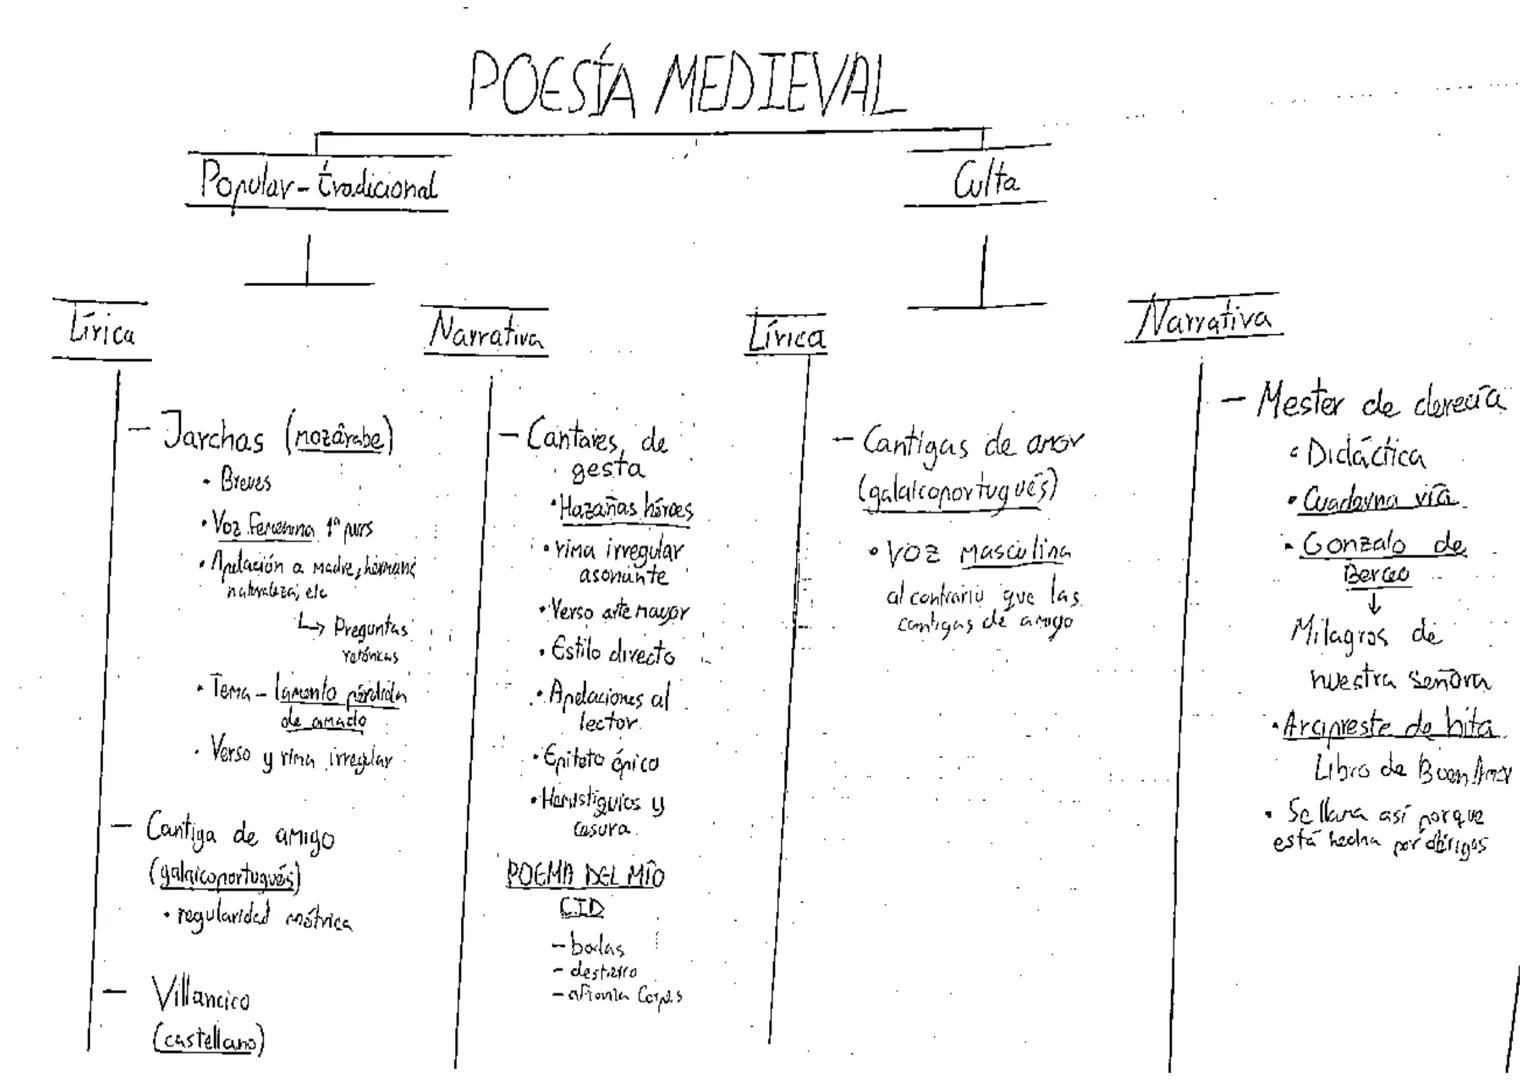 POESÍA MEDIEVAL
Popular-tradicional
Culta
Lírica
- Jarchas (mozárabe)
• Breves
• Voz femenina 1ª pers
• Apelación a madre, hermana
naturaleza, etc
↳ Preguntas
retóricas
• Tema - lamento pérdida
de amado
• Verso y rima irregular
- Cantiga de amigo
(galaicoportugués)
• regularidad métrica
- Villancico
(castellano)
Narrativa
- Cantares de
gesta
• Hazañas héroes
• rima irregular
asonante
• Verso arte mayor
• Estilo directo
• Apelaciones al
lector
• Epíteto épico
• Hemistiquios y
cesura
POEMA DEL MÍO
CID
- bodas
- destierro
- afrenta Corpes
Lírica
- Cantigas de amor
(galaicoportugués)
• Voz masculina
al contrario que las
cantigas de amigo
Narrativa
- Mester de clerecía
• Didáctica
• Cuaderna vía
• Gonzalo de
Berceo
↓
Milagros de
nuestra señora
• Arcipreste de hita
Libro de Buen Amor
• Se llama así porque
está hecha por clérigos